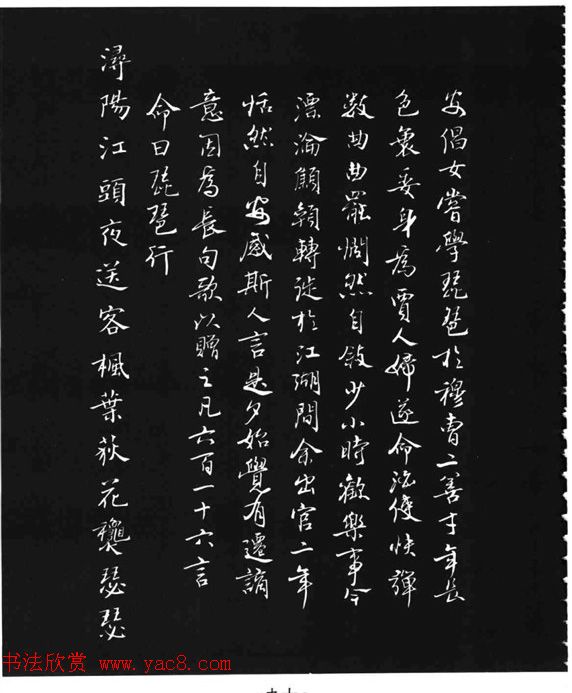 安倡女嘗學琵琶於穆曹二善才年長
色衰委身為賈人婦遂命酒使快彈
數曲曲罷憫然自敍少小時歡樂事今
漂淪顦顇轉徙於江湖間余出官二年
恬然自安感斯人言是夕始覺有遷謫
意因為長句歌以贈之凡六百一十六言
命曰琵琶行
潯陽江頭夜送客楓葉荻花龝瑟瑟
书法欣赏 www.yac8.com